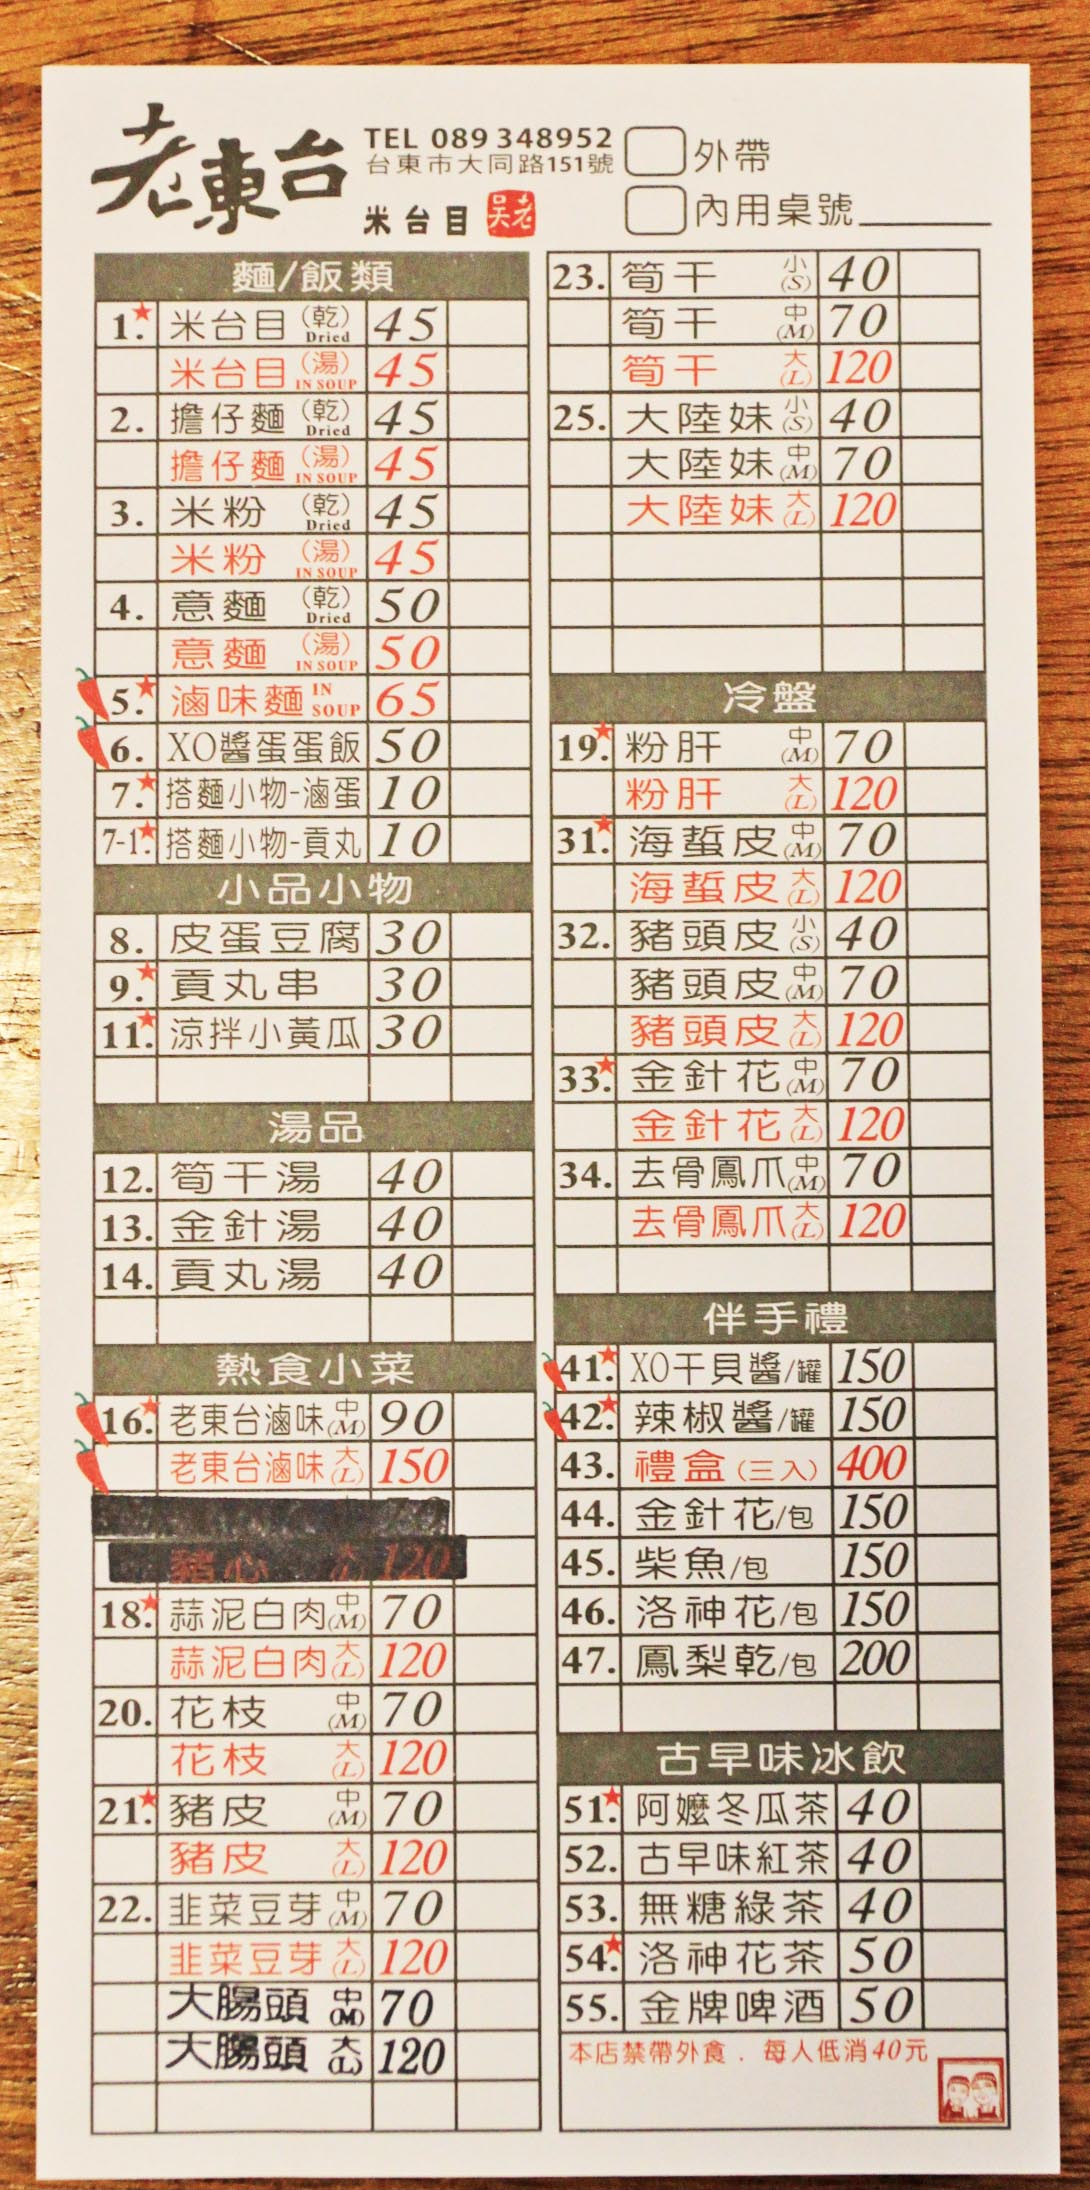 老東台
TEL 089 348952
台東市大同路151號
米台目 吳老
外帶
內用桌號
麵/飯類
1. 米台目 (乾) Dried 45
米台目 (湯) IN SOUP 45
2. 擔仔麵 (乾) Dried 45
擔仔麵 (湯) IN SOUP 45
3. 米粉 (乾) Dried 45
米粉 (湯) IN SOUP 45
4. 意麵 (乾) Dried 50
意麵 (湯) IN SOUP 50
5. 滷味麵 IN SOUP 65
6. XO醬蛋蛋飯 50
7. 搭麵小物-滷蛋 10
7-1. 搭麵小物-貢丸 10
小品小物
8. 皮蛋豆腐 30
9. 貢丸串 30
11. 涼拌小黃瓜 30
湯品
12. 筍干湯 40
13. 金針湯 40
14. 貢丸湯 40
熱食小菜
16. 老東台滷味 中(M) 90
老東台滷味 大(L) 150
豬心 大 120
18. 蒜泥白肉 中(M) 70
蒜泥白肉 大(L) 120
20. 花枝 中(M) 70
花枝 大(L) 120
21. 豬皮 中(M) 70
豬皮 大(L) 120
22. 韭菜豆芽 中(M) 70
韭菜豆芽 大(L) 120
大腸頭 中(M) 70
大腸頭 大(L) 120
23. 筍干 小(S) 40
筍干 中(M) 70
筍干 大(L) 120
25. 大陸妹 小(S) 40
大陸妹 中(M) 70
大陸妹 大(L) 120
冷盤
19. 粉肝 中(M) 70
粉肝 大(L) 120
31. 海蜇皮 中(M) 70
海蜇皮 大(L) 120
32. 豬頭皮 小(S) 40
豬頭皮 中(M) 70
豬頭皮 大(L) 120
33. 金針花 中(M) 70
金針花 大(L) 120
34. 去骨鳳爪 中(M) 70
去骨鳳爪 大(L) 120
伴手禮
41. XO干貝醬/罐 150
42. 辣椒醬/罐 150
43. 禮盒(三入) 400
44. 金針花/包 150
45. 柴魚/包 150
46. 洛神花/包 150
47. 鳳梨乾/包 200
古早味冰飲
51. 阿嬤冬瓜茶 40
52. 古早味紅茶 40
53. 無糖綠茶 40
54. 洛神花茶 50
55. 金牌啤酒 50
本店禁帶外食．每人低消40元